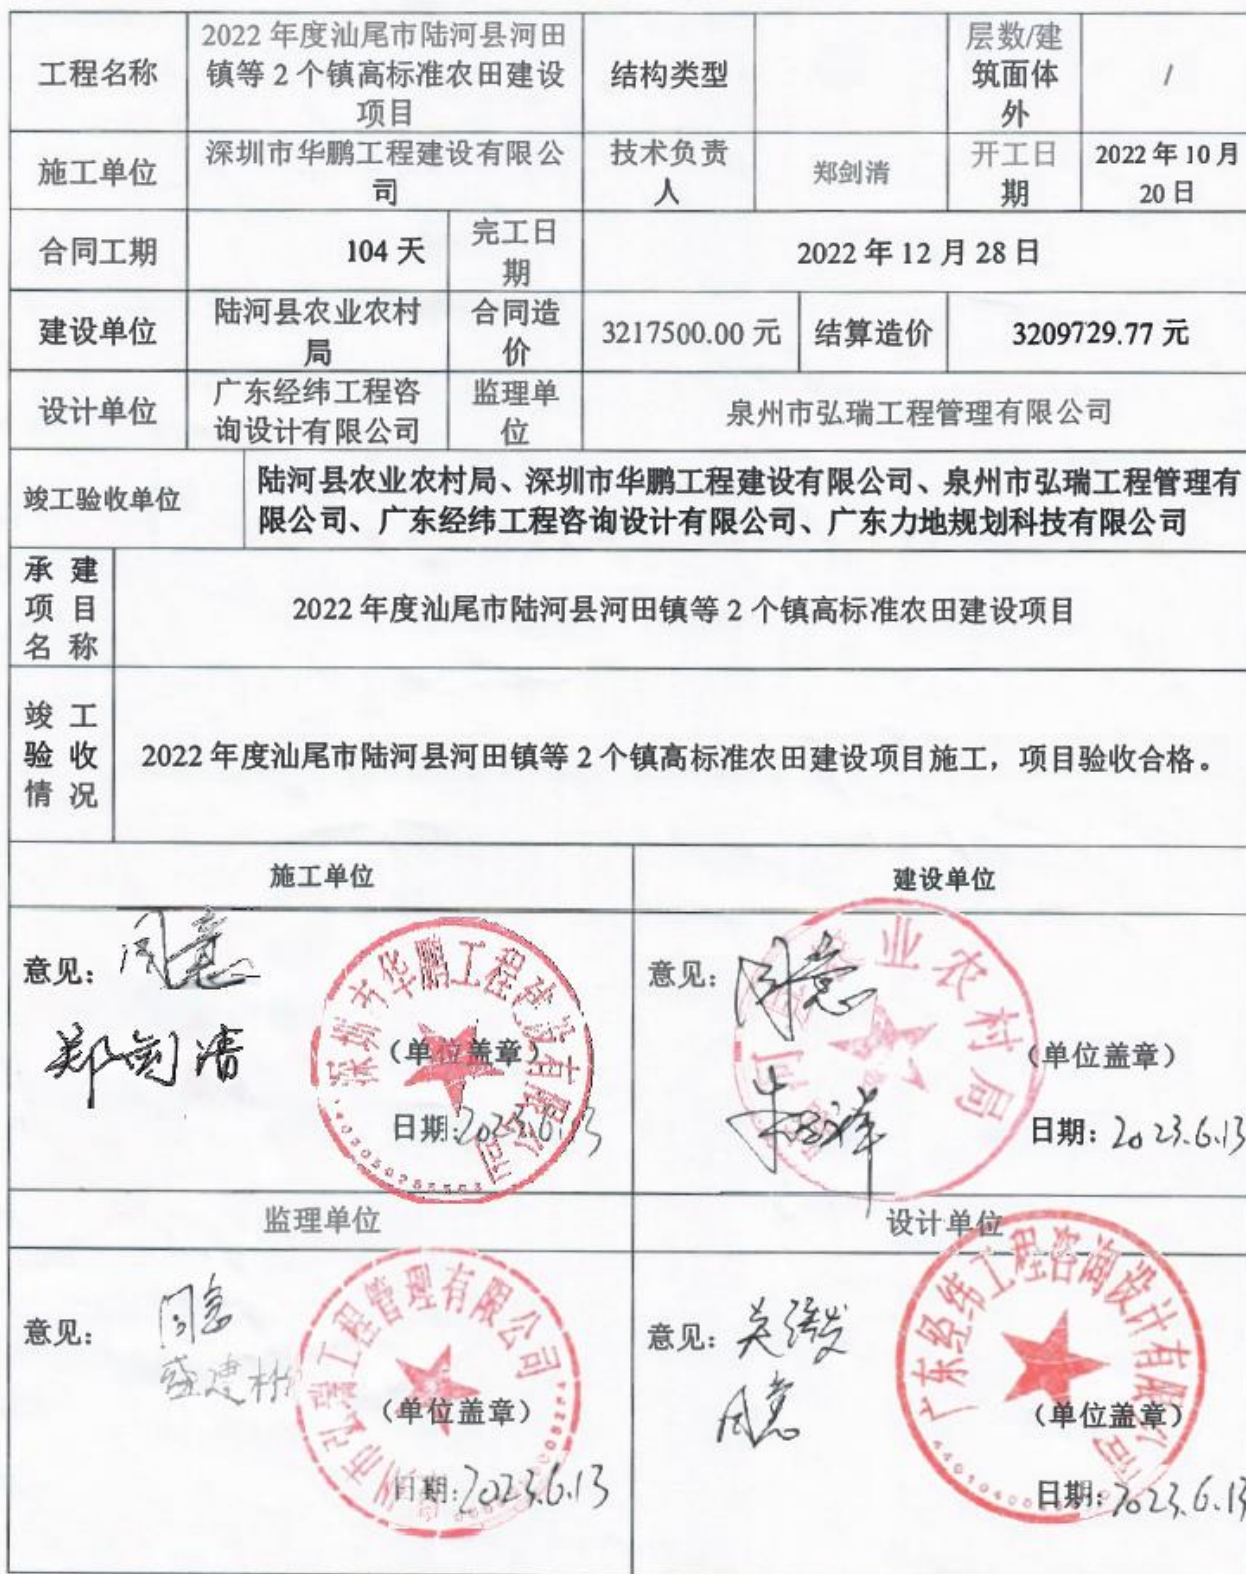 工程名称
2022 年度汕尾市陆河县河田
镇等 2 个镇高标准农田建设
项目
结构类型
层数/建
筑面体
外
/
施工单位
深圳市华鹏工程建设有限公
司
技术负责
人
郑剑清
开工日
期
2022 年 10 月
20 日
合同工期
104 天
完工日
期
2022 年 12 月 28 日
建设单位
陆河县农业农村
局
合同造
价
3217500.00 元
结算造价
3209729.77 元
设计单位
广东经纬工程咨
询设计有限公司
监理单
位
泉州市弘瑞工程管理有限公司
竣工验收单位
陆河县农业农村局、深圳市华鹏工程建设有限公司、泉州市弘瑞工程管理有
限公司、广东经纬工程咨询设计有限公司、广东力地规划科技有限公司
承 建
项 目
名 称
2022 年度汕尾市陆河县河田镇等 2 个镇高标准农田建设项目
竣 工
验 收
情 况
2022 年度汕尾市陆河县河田镇等 2 个镇高标准农田建设项目施工，项目验收合格。
施工单位
建设单位
意见：同意
郑剑清
深圳市华鹏工程建设有限公司
（单位盖章）
日期：2023.6.13
意见：同意
业农村局
（单位盖章）
日期：2023.6.13
监理单位
设计单位
意见：同意
州市弘瑞工程管理有限公司
（单位盖章）
日期：2023.6.13
意见：
同意
广东经纬工程咨询设计有限公司
（单位盖章）
日期：2023.6.13